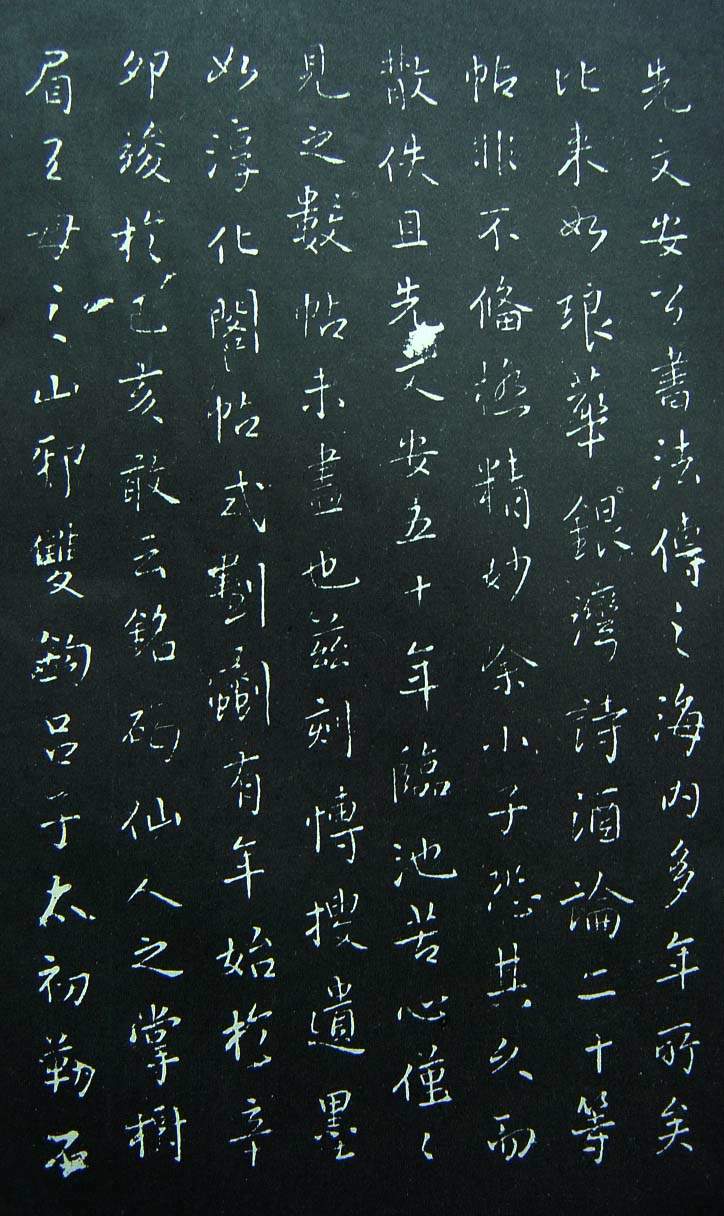 先文安公書法傳之海內多年所矣
比來如琅華銀灣詩酒論二十等
帖非不備極精妙余小子恐其久而
散佚且先文安五十年臨池苦心僅〻
見之數帖未盡也茲刻博搜遺墨
如淳化閣帖式劃劙有年始於辛
卯竣於己亥敢云銘碣仙人之掌樹
眉王母之山邪雙鉤呂子太初勒石